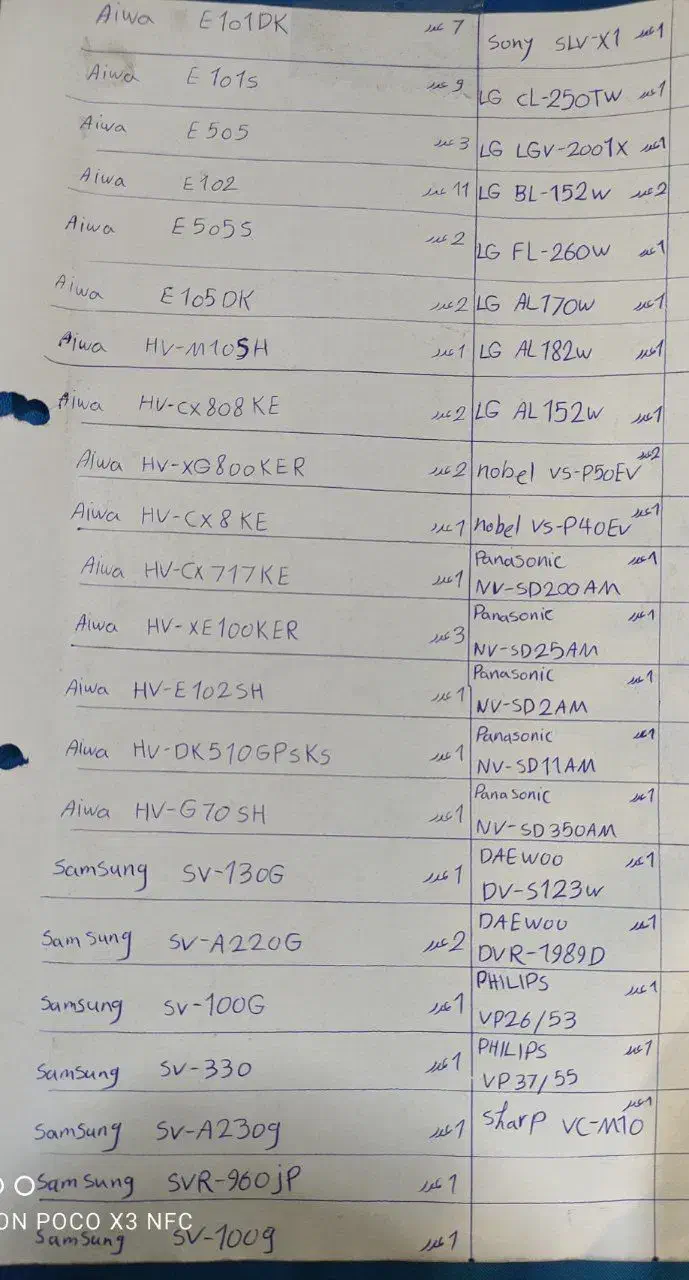 Aiwa E101DK 7 عدد
Aiwa E101s 9 عدد
Aiwa E505 3 عدد
Aiwa E102 11 عدد
Aiwa E505S 2 عدد
Aiwa E105DK 2 عدد
Aiwa HV-M105H 1 عدد
Aiwa HV-CX808KE 2 عدد
Aiwa HV-XG800KER 2 عدد
Aiwa HV-CX8KE 1 عدد
Aiwa HV-CX717KE 1 عدد
Aiwa HV-XE100KER 3 عدد
Aiwa HV-E102SH 1 عدد
Aiwa HV-DK510GPSKS 1 عدد
Aiwa HV-G70SH 1 عدد
Samsung SV-130G 1 عدد
Samsung SV-A220G 2 عدد
Samsung SV-100G 1 عدد
Samsung SV-330 1 عدد
Samsung SV-A230g 1 عدد
Samsung SVR-960jP 1 عدد
Samsung SV-100g 1 عدد
Sony SLV-X1 1 عدد
LG CL-250TW 1 عدد
LG LGV-2001X 1 عدد
LG BL-152W 2 عدد
LG FL-260W 1 عدد
LG AL170W 1 عدد
LG AL182W 1 عدد
LG AL152W 1 عدد
nobel VS-P50EV 2 عدد
nobel VS-P40EV 1 عدد
Panasonic 1 عدد
NV-SD200AM
Panasonic 1 عدد
NV-SD25AM
Panasonic 1 عدد
NV-SD2AM
Panasonic 1 عدد
NV-SD11AM
Panasonic 1 عدد
NV-SD350AM
DAEWOO 1 عدد
DV-S123W
DAEWOO 1 عدد
DVR-1989D
PHILIPS 1 عدد
VP26/53
PHILIPS 1 عدد
VP37/55
Sharp VC-M10 1 عدد
ON POCO X3 NFC